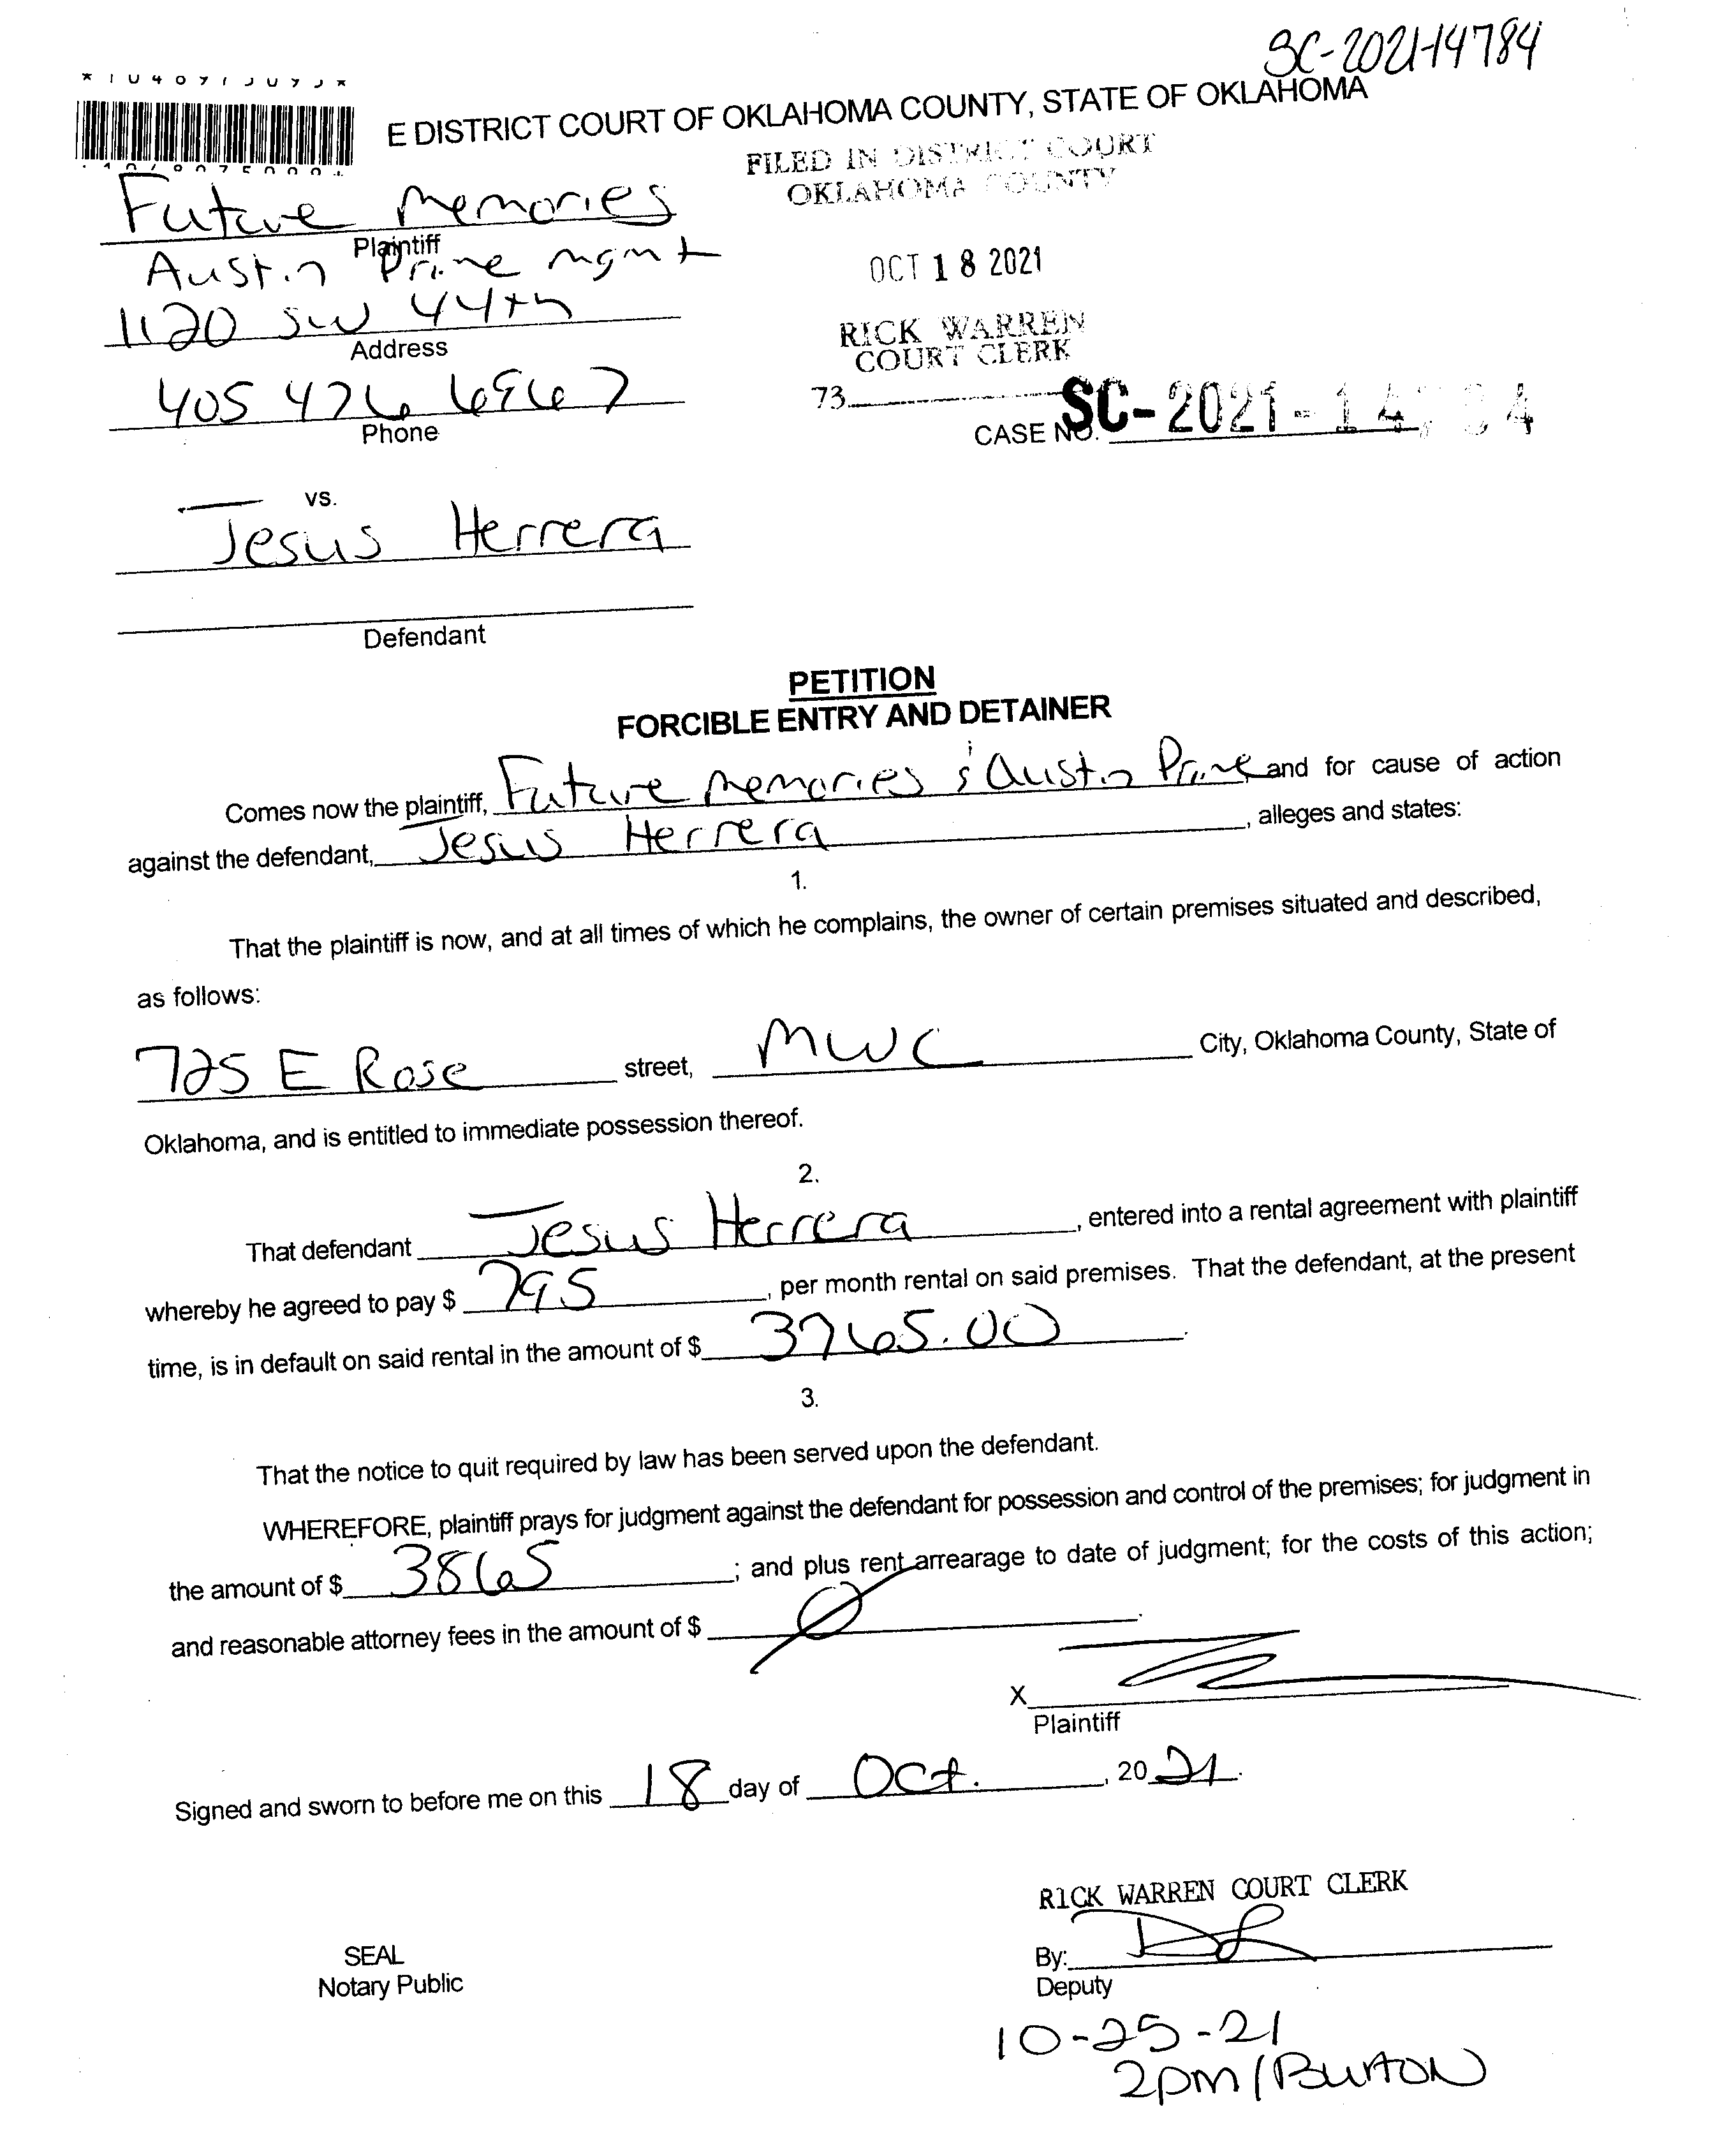 SC-2021-14784
E DISTRICT COURT OF OKLAHOMA COUNTY, STATE OF OKLAHOMA
FILED IN DISTRICT COURT
OKLAHOMA COUNTY
Future Memories
Plaintiff
Austin Prime mgmt
OCT 18 2021
1120 SW 44th
Address
RICK WARREN
COURT CLERK
405 476 6967
Phone
73
CASE NO. SC-2021-14784
vs.
Jesus Herrera
Defendant
PETITION
FORCIBLE ENTRY AND DETAINER
Comes now the plaintiff, Future Memories & Austin Prime, and for cause of action
against the defendant, Jesus Herrera, alleges and states:
1.
That the plaintiff is now, and at all times of which he complains, the owner of certain premises situated and described,
as follows:
725 E Rose street, MWC City, Oklahoma County, State of
Oklahoma, and is entitled to immediate possession thereof.
2.
That defendant Jesus Herrera, entered into a rental agreement with plaintiff
whereby he agreed to pay $ 795, per month rental on said premises. That the defendant, at the present
time, is in default on said rental in the amount of $ 3765.00.
3.
That the notice to quit required by law has been served upon the defendant.
WHEREFORE, plaintiff prays for judgment against the defendant for possession and control of the premises; for judgment in
the amount of $ 3865; and plus rent arrearage to date of judgment; for the costs of this action;
and reasonable attorney fees in the amount of $ Ø.
X
Plaintiff
Signed and sworn to before me on this 18 day of Oct., 20 21.
RICK WARREN COURT CLERK
SEAL
Notary Public
By:
Deputy
10-25-21
2pm/Burton